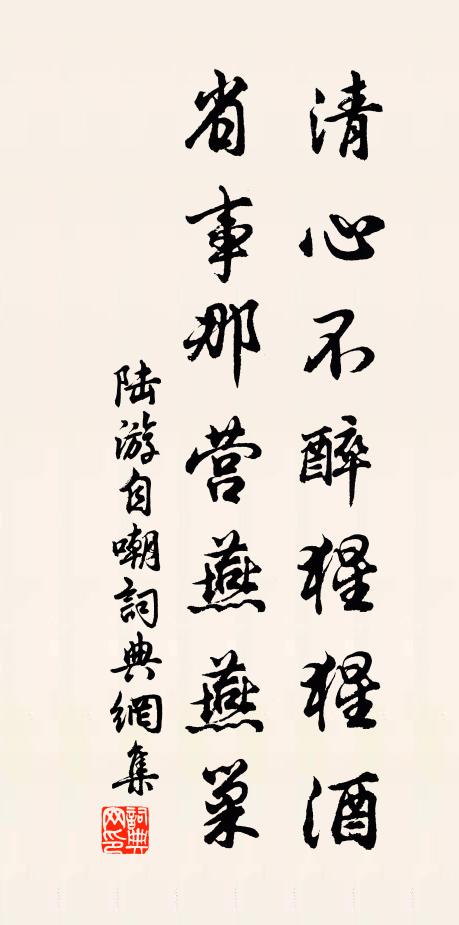 清心不醉猩猩酒
省事那营燕燕巢
陆游自嘲詞典網集
詞典网印